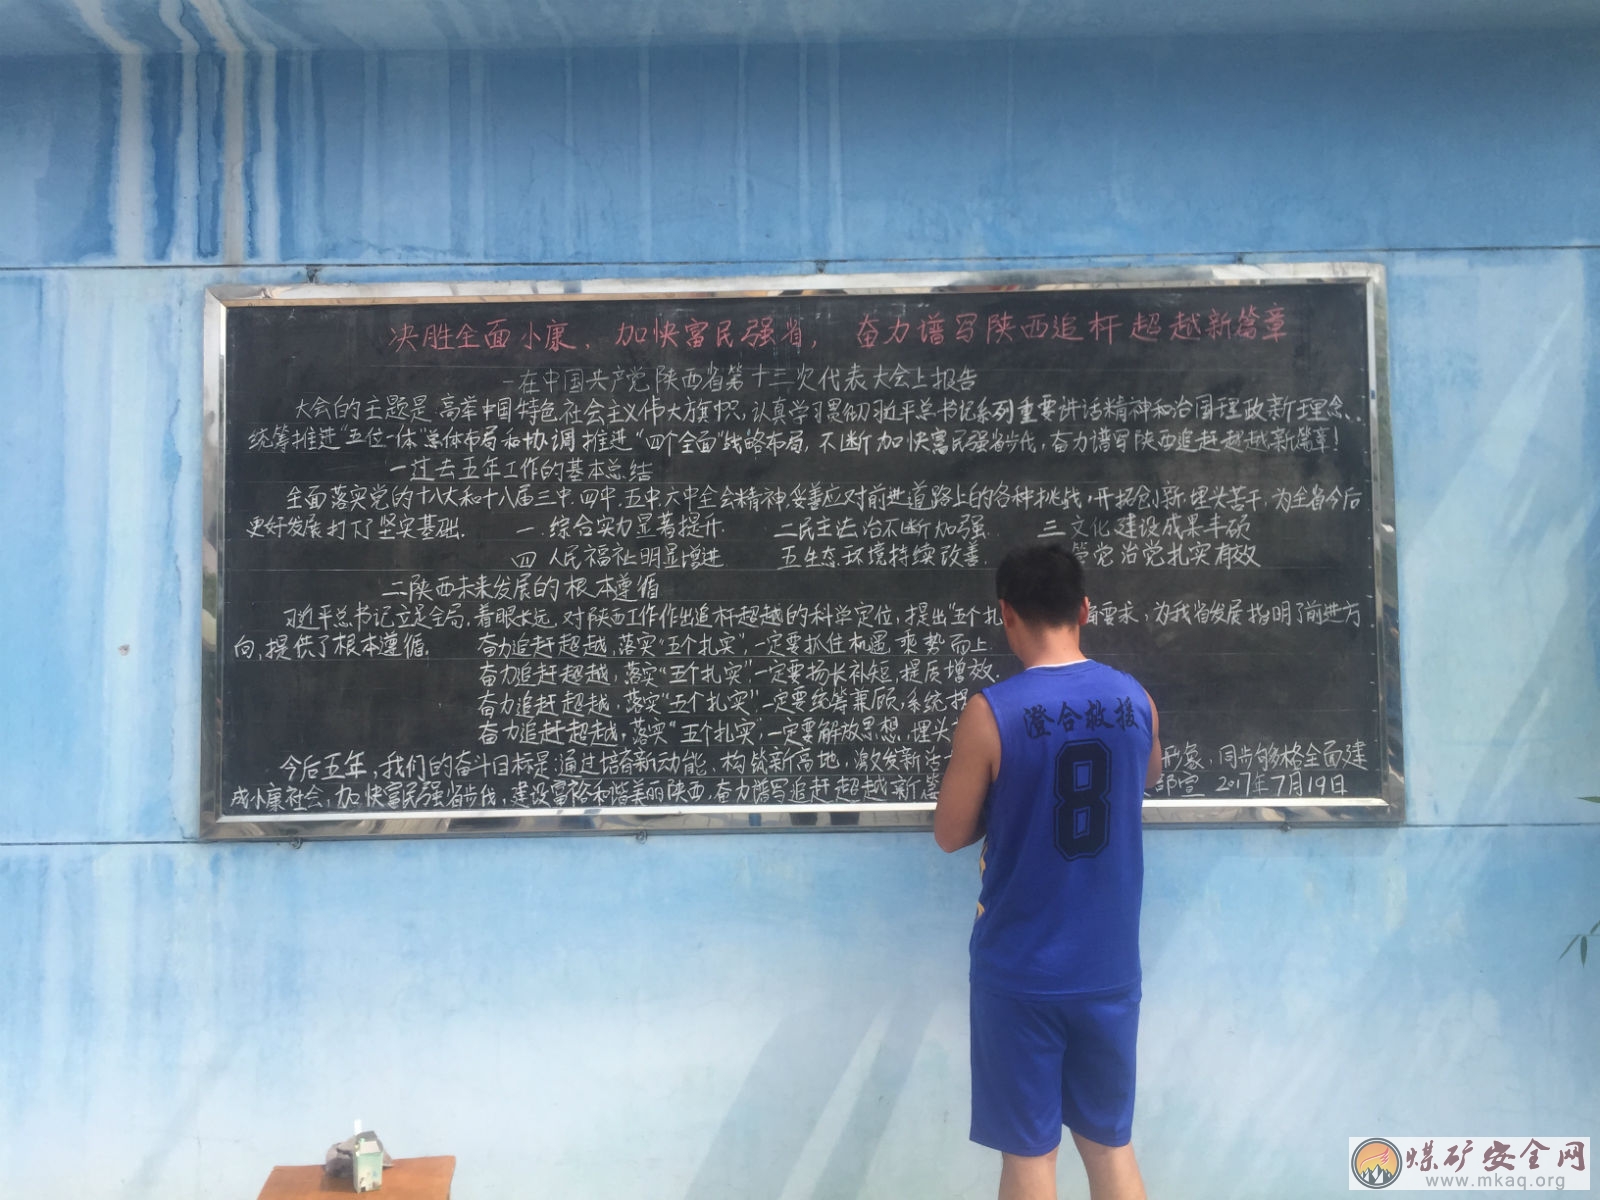 决胜全面小康、加快富民强省，奋力谱写陕西追杆超越新篇章
一在中国共产党陕西省第十三次代表大会上报告
大会的主题是：高举中国特色社会主义伟大旗帜，认真学习贯彻习近平总书记系列重要讲话精神和治国理政新理念、
统筹推进"五位一体"总体布局和协调推进"四个全面"战略布局，不断加快富民强省步伐，奋力谱写陕西追赶超越新篇章！
一过去五年工作的基本总结
全面落实党的十八大和十八届三中，四中，五中，六中全会精神，妥善应对前进道路上的各种挑战，开拓创新，埋头苦干，为全省今后
更好发展打下了坚实基础。 一．综合实力显著提升 二民主法治不断加强 三文化建设成果丰硕
四人民福祉明显增进 五生态环境持续改善． 管党治党扎实有效
二陕西未来发展的根本遵循
习近平总书记立足全局，着眼长远，对陕西工作作出追杆超越的科学定位，提出"五个扎 要求，为我省发展指明了前进方
向，提供了根本遵循． 奋力追赶超越，落实"五个扎实"，一定要抓住机遇乘势而上
奋力追赶超越，落实"五个扎实"，一定要扬长补短，提质增效．
奋力追赶超越，落实"五个扎实"，一定要统筹兼顾，系统
奋力追赶超越，落实"五个扎实"，一定要解放思想，埋头
今后五年，我们的奋斗目标是：通过培育新动能、构筑新高地，激发新活 形象，同步够格全面建
成小康社会，加快富民强省步伐，建设富裕和谐美丽陕西，奋力谱写追赶超越新篇 部宣 2017年7月19日
澄合救援
8
煤矿安全网
www.mkaq.org